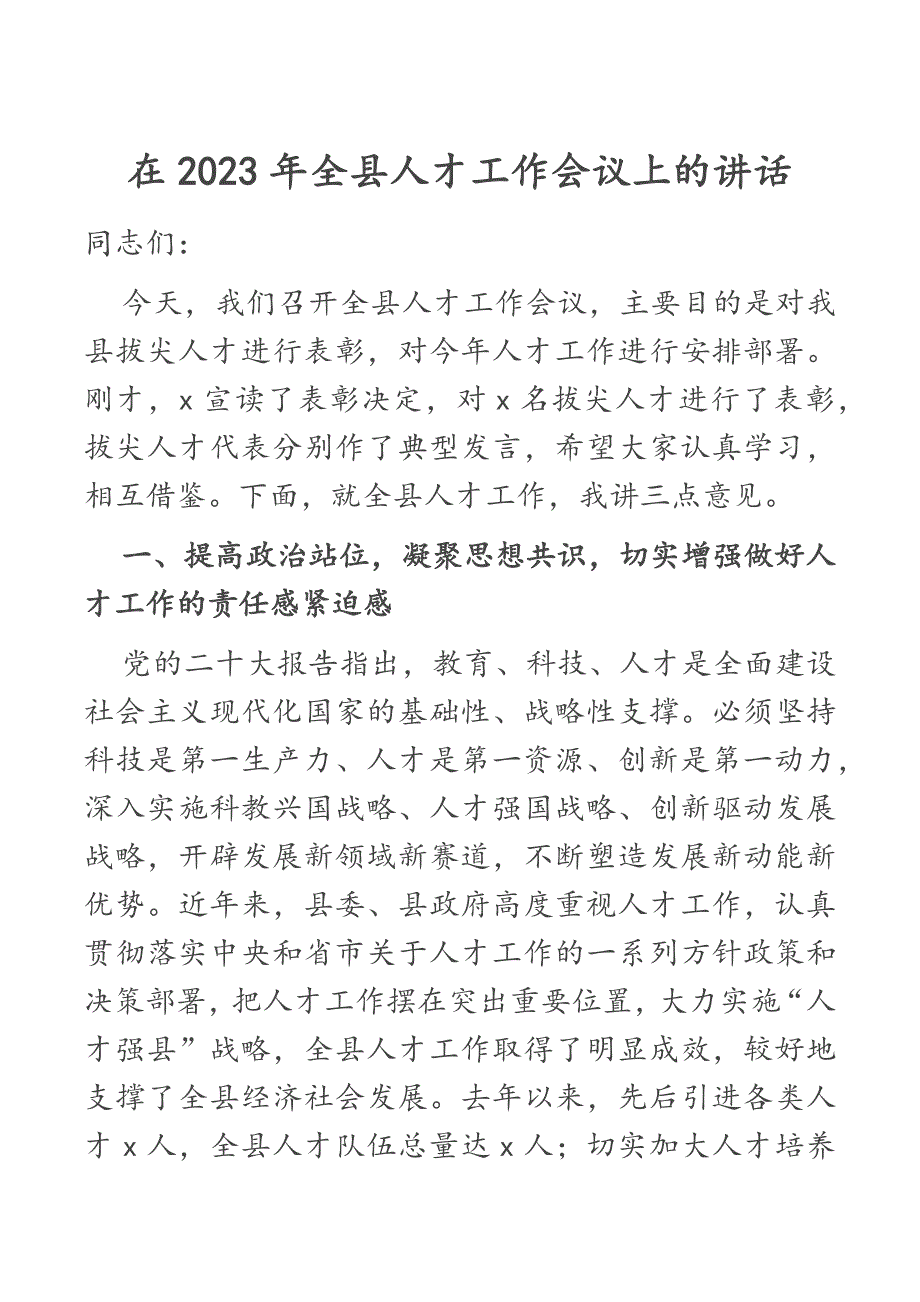 在 2023 年全县人才工作会议上的讲话
同志们：
今天，我们召开全县人才工作会议，主要目的是对我
县拔尖人才进行表彰，对今年人才工作进行安排部署。
刚才，x 宣读了表彰决定，对 x 名拔尖人才进行了表彰，
拔尖人才代表分别作了典型发言，希望大家认真学习，
相互借鉴。下面，就全县人才工作，我讲三点意见。
一、提高政治站位，凝聚思想共识，切实增强做好人
才工作的责任感紧迫感
党的二十大报告指出，教育、科技、人才是全面建设
社会主义现代化国家的基础性、战略性支撑。必须坚持
科技是第一生产力、人才是第一资源、创新是第一动力，
深入实施科教兴国战略、人才强国战略、创新驱动发展
战略，开辟发展新领域新赛道，不断塑造发展新动能新
优势。近年来，县委、县政府高度重视人才工作，认真
贯彻落实中央和省市关于人才工作的一系列方针政策和
决策部署，把人才工作摆在突出重要位置，大力实施“人
才强县”战略，全县人才工作取得了明显成效，较好地
支撑了全县经济社会发展。去年以来，先后引进各类人
才 x 人，全县人才队伍总量达 x 人；切实加大人才培养